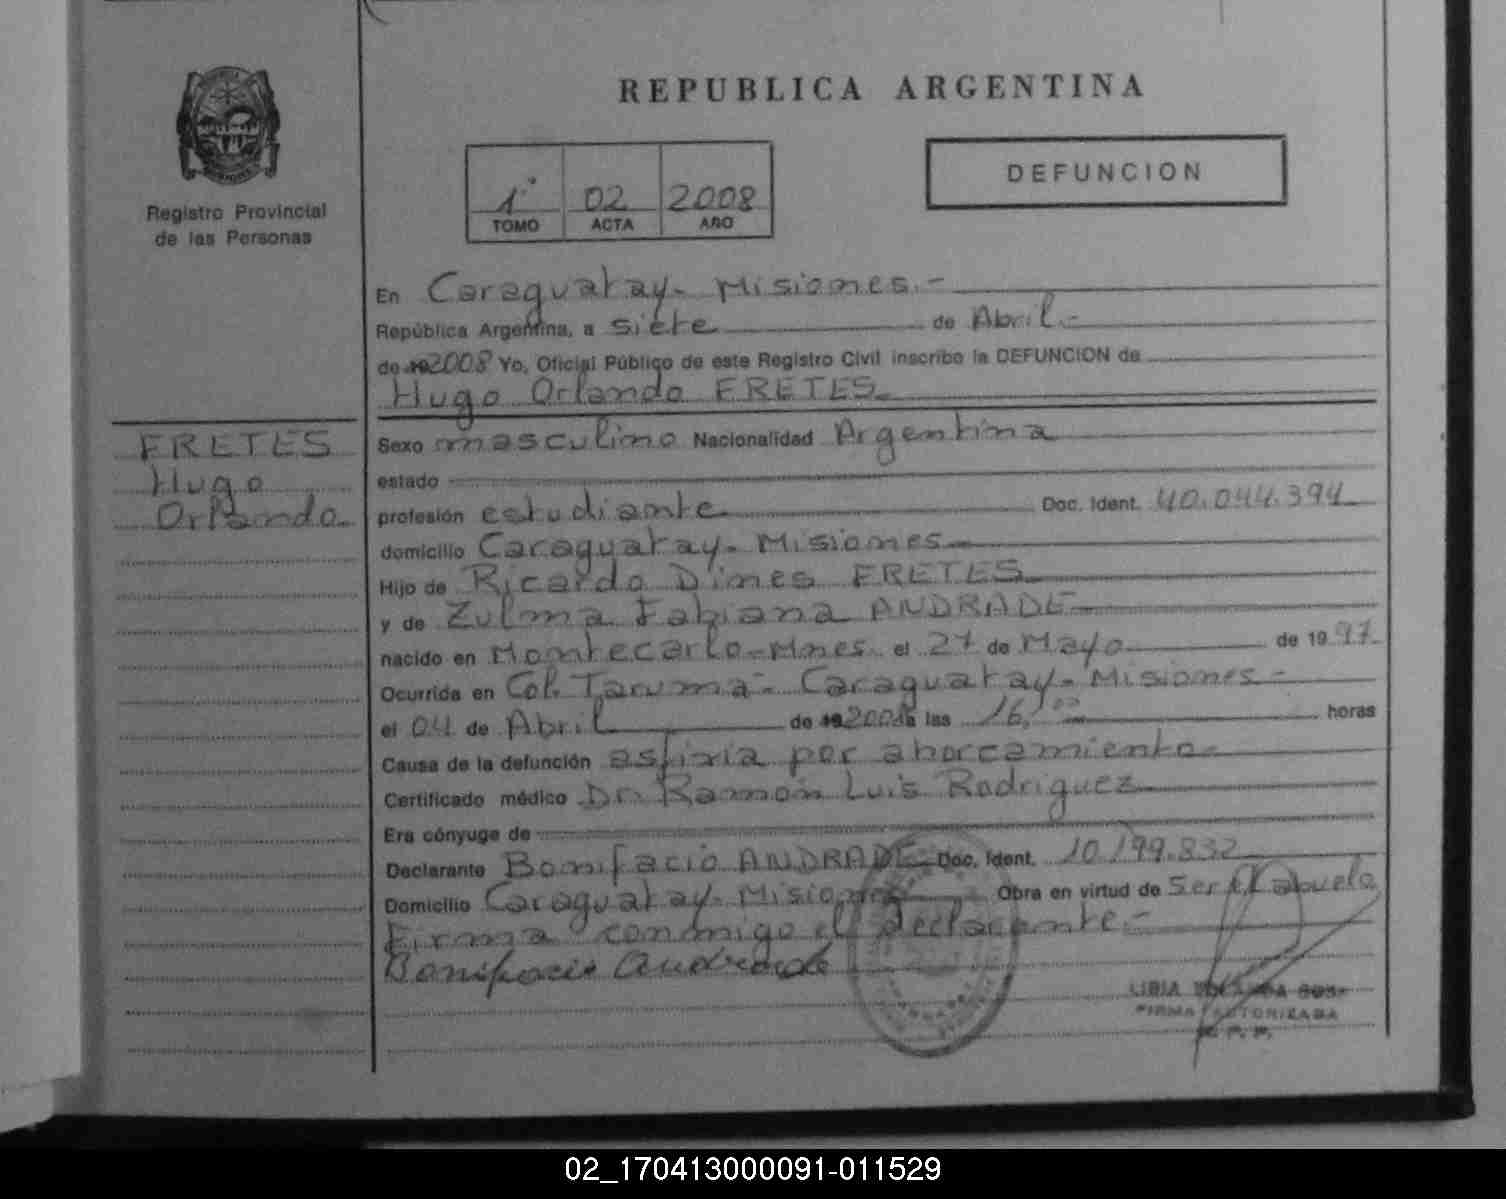 REPUBLICA ARGENTINA
Registro Provincial
de las Personas
1° 02 2008
TOMO ACTA AÑO
DEFUNCION
En Caraguatay - Misiones.-
República Argentina, a siete de Abril.-
de 19 2008 Yo, Oficial Público de este Registro Civil inscribo la DEFUNCION de
Hugo Orlando FRETES.
FRETES
Hugo
Orlando
Sexo masculino Nacionalidad Argentina
estado
profesión estudiante Doc. Ident. 40.044.394
domicilio Caraguatay - Misiones
Hijo de Ricardo Dines FRETES
y de Zulma Fabiana ANDRADE
nacido en Montecarlo - Mnes. el 27 de Mayo de 19 97
Ocurrida en Col. Taruma - Caraguatay - Misiones -
el 04 de Abril de 19 2008 a las 16,00 horas
Causa de la defunción asfixia por ahorcamiento -
Certificado médico Dr. Ramón Luis Rodriguez
Era cónyuge de
Declarante Bonifacio ANDRADE Doc. Ident. 10.199.832
Domicilio Caraguatay - Misiones Obra en virtud de ser el abuelo
Firma conmigo el declarante.-
Bonifacio Andrade
LIBIA
FIRMA AUTORIZADA
R. P. P.
02_170413000091-011529